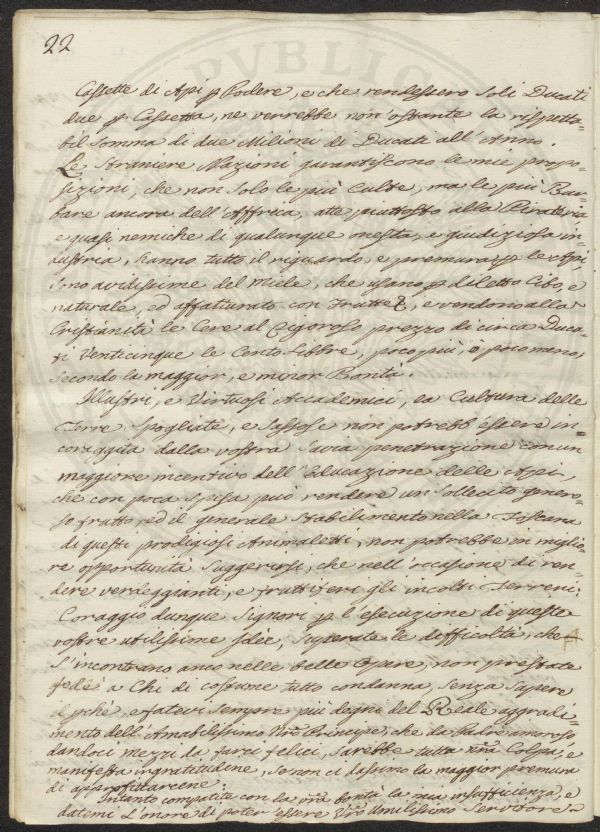 22
Cassette di Api p Podere, e che rendessero soli Ducati
due p Cassetta, ne verrebbe non ostante la rispetta=
bil somma di due Milioni di Ducati all'Anno.
Le straniere Nazioni garantiscono le mie propo=
sizioni, che non solo le più Culte, ma le più Bar=
bare ancora dell'Affrica, atte piuttosto alla Pirateria
e quasi nemiche di qualunque onestà, e giudiziosa in=
dustria, hanno tutto il riguardo, e premura p le Api,
sono avidissime del Miele, che usano p diletto Cibo, e
naturale, ed affatturato con Frutte, e vendono alla
Cristianità le Cere al Rigoroso prezzo di circa Duca=
ti Venticinque le Cento Libbre, poco più, o poco meno,
secondo la maggior, e minor Bontà.
Illustri, e Virtuosi Accademici, la Cultura delle
Terre spogliate, e sassose non potrebb'essere in=
coraggita dalla vostra savia penetrazione con un
maggiore incentivo dell'Educazione delle Api,
che con poca spesa può rendere un sollecito genero=
so frutto, ed il generale stabilimento nella Toscana
di questi prodigiosi Animaletti, non potrebbe in miglio=
re opportunità suggerirsi, che nell'occasione di ren=
dere verdeggianti, e fruttiferi gl'incolti Terreni:
Coraggio dunque Signori p l'esecuzione di queste
vostre utilissime Idèe, superate le difficoltà, che
s'incontrano anco nelle belle Opere, non prestate
fede a Chi di costume tutto condanna, senza sapere
il pchè, e fatevi sempre più degni del Reale aggradi=
mento dell'Amabilissimo Vro Principe, che da Padre amoroso
dandoci mezzi da farci felici, sarebbe tutta nra Colpa, e
manifesta ingratitudine, se non ci dassimo la maggior premura
di approfittarcene:
Intanto compatite con la vra bontà la mia insufficienza, e
datemi l'onore di poter essere Vro Umilissimo Servitore